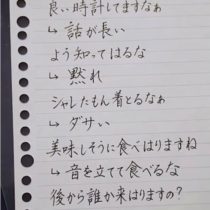 良い時計してますなぁ
↳ 話が長い
よう知ってはるな
↳ 黙れ
シャレたもん着とるなぁ
↳ ダサい
美味しそうに食べはりますね
↳ 音を立てて食べるな
後から誰か来はりますの?